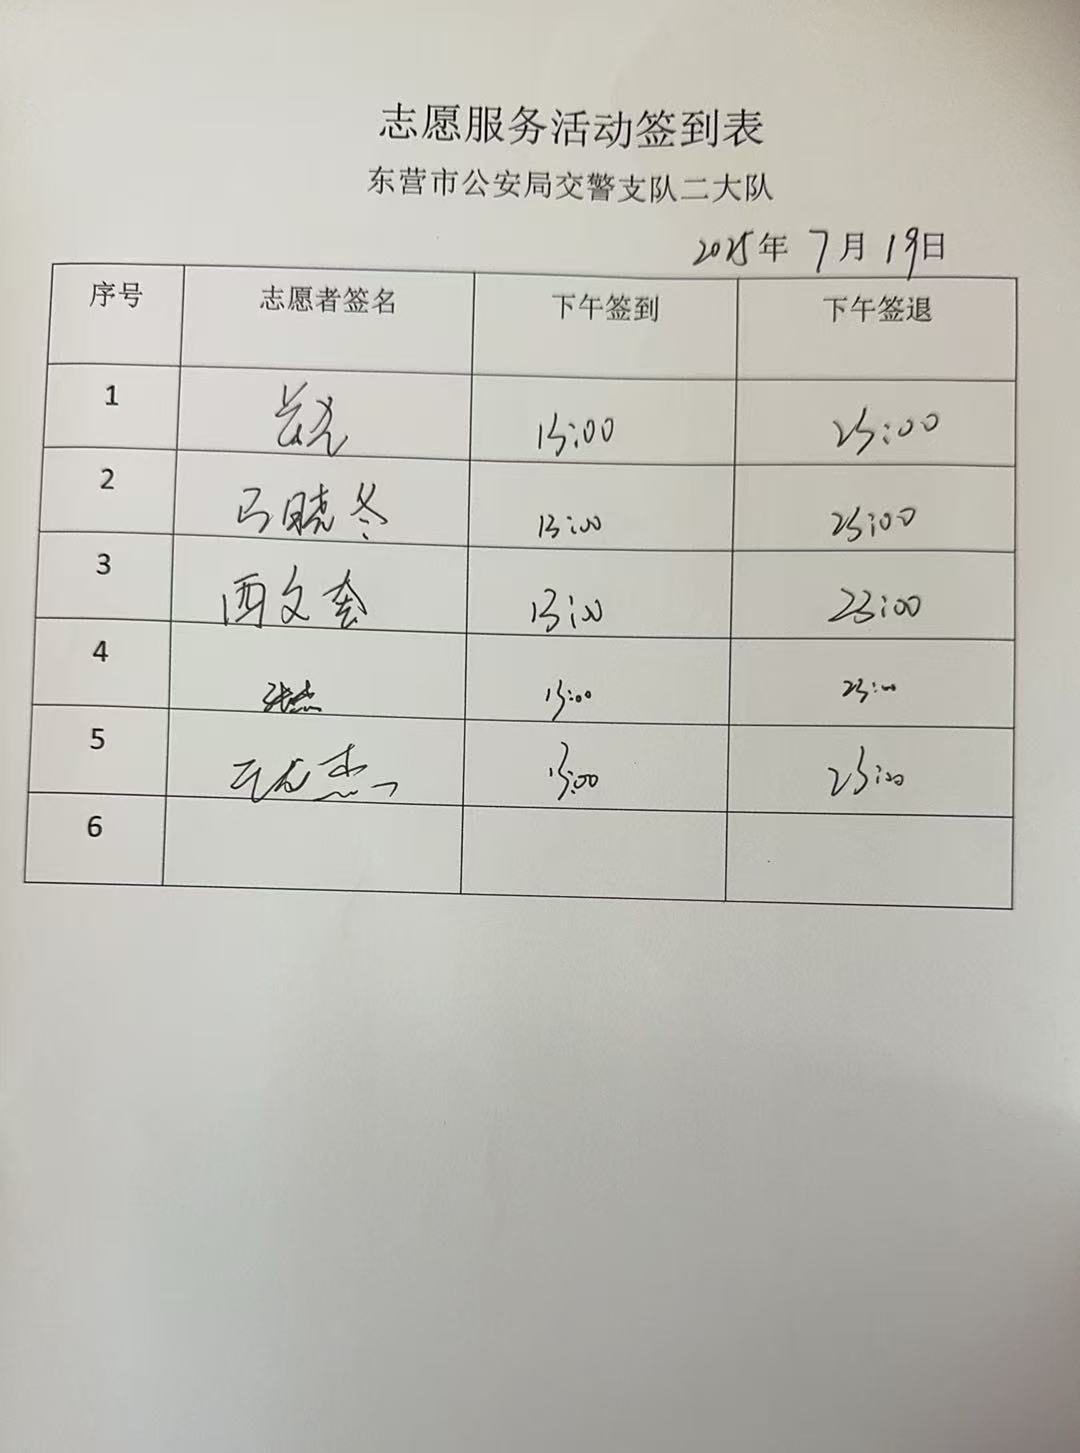 志愿服务活动签到表
东营市公安局交警支队二大队
2025年 7月 19日
序号 志愿者签名 下午签到 下午签退
1 13:00 23:00
2 马晓冬 13:00 23:00
3 西文奎 13:00 23:00
4 张杰 13:00 23:00
5 13:00 23:00
6